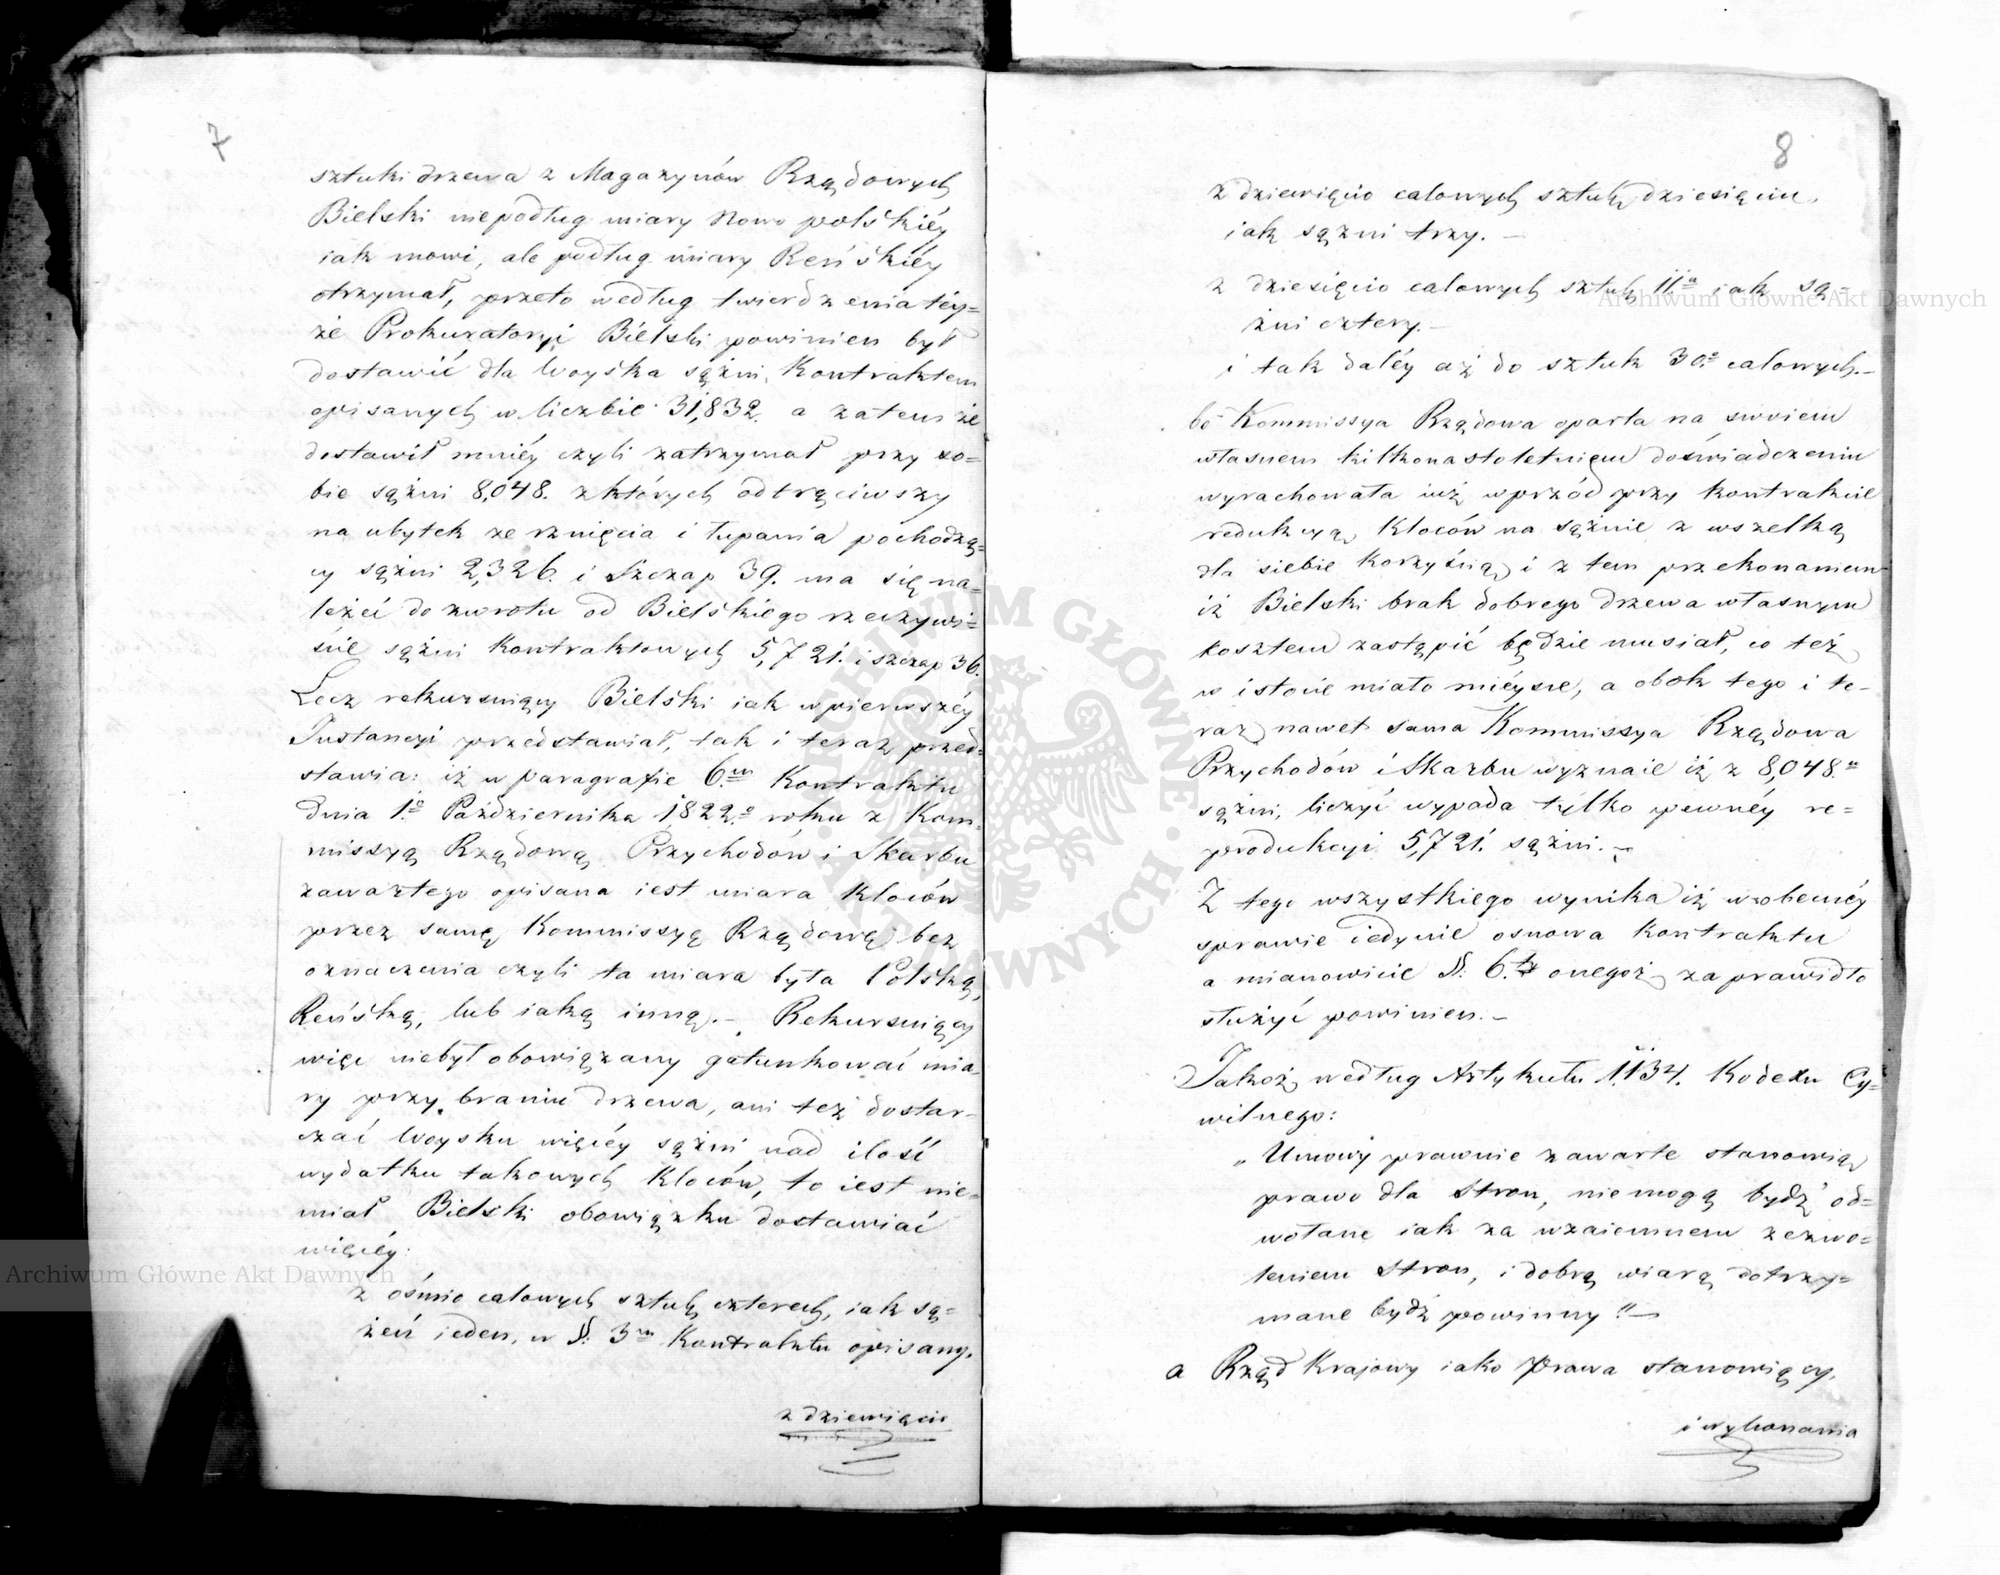 7
sztuki drzewa z Magazynów Rządowych
Bielski niepodług miary Nowo polskiéy
iak mowi, ale podług miary Reńskiéy
otrzymał, przeto według twierdzenia téy=
że Prokuratoryi Bielski powinien był
dostawić dla Woyska sążni, Kontraktem
opisanych w liczbie 31,832. a zatem że
dostawił mniéy czyli zatrzymał przy so=
bie sążni 8,048. z których odtrąciwszy
na ubytek ze rznięcia i łupania pochodzą=
cy sążni 2,326. i Szczap 39. ma się na=
leżeć do zwrotu od Bielskiego rzeczywi=
ście sążni Kontraktowych 5,721. i szczap 36.
Lecz rekuruiący Bielski iak w pierwszéy
Instancyi przedstawiał, tak i teraz przed=
stawia: iż w paragrafie 6.m Kontraktu
dnia 1.o Października 1822.o roku z Kom=
missyą Rządową Przychodów i Skarbu
zawartego opisana iest miara Kloców
przez samę Kommissyę Rządowę bez
oznaczenia czyli ta miara była Polską,
Reńską, lub iaką inną. – Rekursuiący
więc niebył obowiązany gatunkować mia=
ry przy braniu drzewa, ani też dostar=
czać Woysku więcéy sążni nad ilość
wydatku takowych Kloców, to iest nie=
miał Bielski obowiązku dostawiać
więcéy:
z ośmio calowych sztuk czterech, iak są=
żeń ieden, w §. 3m Kontraktu opisany.
z dziewięcio
8
z dziewięcio calowych sztuk dziesięciu,
iak sążni trzy. –
z dziesięcio calowych sztuk 11.u iak są=
żni cztery. –
i tak daléy aż do sztuk 30.o calowych. –
bo Kommissya Rządowa oparta na swoiem
własnem kilkonastoletniem doświadczeniu
wyrachowała iuż wprzód przy kontrakcie
redukcyą Kloców na sążnie z wszelką
dla siebie korzyścią i z tem przekonaniem
iż Bielski brak dobrego drzewa własnym
kosztem zastąpić będzie musiał, co też
w istocie miało mieysce, a obok tego i te=
raz nawet sama Kommissya Rządowa
Przychodów i Skarbu wyznaie iż z 8,048.u
sążni, liczyć wypada tylko pewnéy re=
produkcyi 5,721. sążni. –
Z tego wszystkiego wynika iż w obecnéy
sprawie iedynie osnowa Kontraktu
a mianowicie §. 6. onegoż za prawidło
służyć powinien. –
Jakoż według Artykułu 1134. Kodexu Cy=
wilnego:
„Umowy prawnie zawarte stanowią
prawo dla Stron, nie mogą bydź od=
wołane iak za wzaiemnem zezwo=
leniem Stron, i dobrą wiarą dotrzy=
mane bydź powinny" –
a Rząd Krajowy iako Prawa stanowiący,
i wykonania
Archiwum Główne Akt Dawnych
Archiwum Główne Akt Dawnych
ARCHIWUM GŁÓWNE AKT DAWNYCH